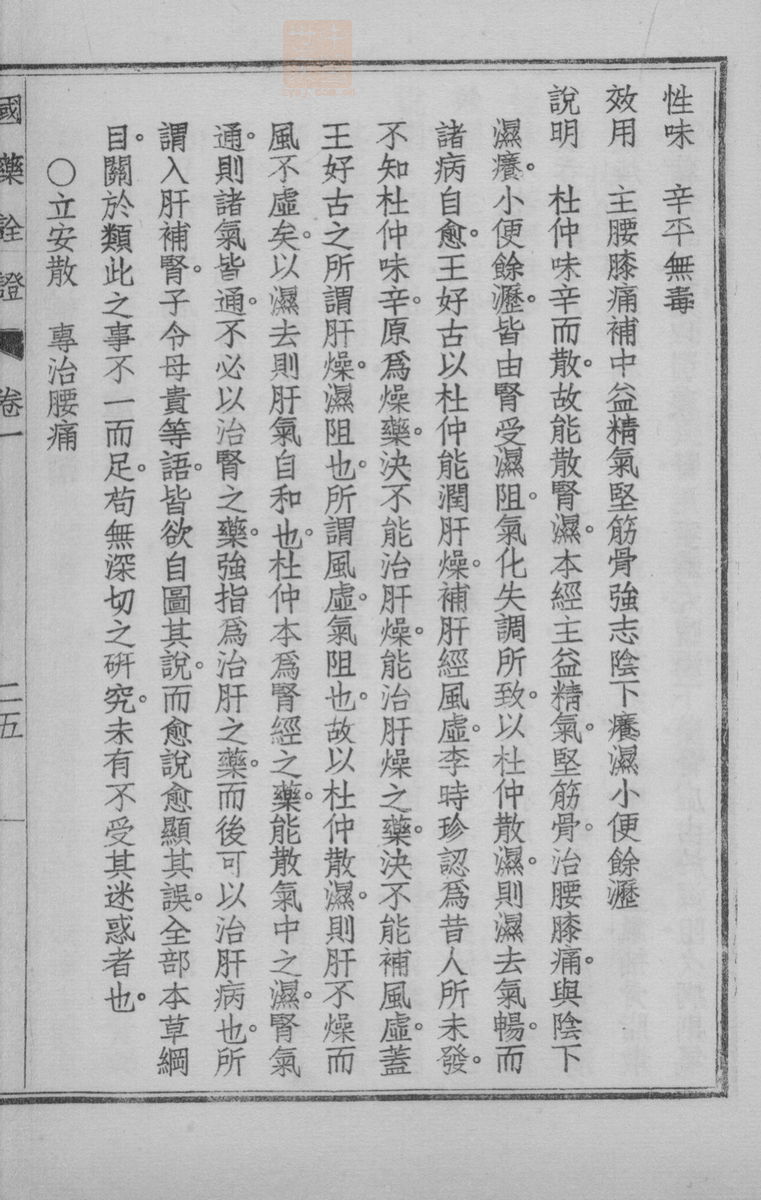 性味　辛平無毒
效用　主腰膝痛補中益精氣堅筋骨強志陰下癢濕小便餘瀝
說明　杜仲味辛而散。故能散腎濕。本經主益精氣。堅筋骨。治腰膝痛。與陰下
濕癢。小便餘瀝。皆由腎受濕阻。氣化失調所致。以杜仲散濕。則濕去氣暢。而
諸病自愈。王好古以杜仲能潤肝燥。補肝經風虛。李時珍認爲昔人所未發。
不知杜仲味辛。原爲燥藥。決不能治肝燥。能治肝燥之藥。決不能補風虛。蓋
王好古之所謂肝燥。濕阻也。所謂風虛。氣阻也。故以杜仲散濕。則肝不燥而
風不虛矣。以濕去則肝氣自和也。杜仲本爲腎經之藥。能散氣中之濕。腎氣
通。則諸氣皆通。不必以治腎之藥。強指爲治肝之藥。而後可以治肝病也。所
謂入肝補腎。子令母貴等語。皆欲自圖其說。而愈說愈顯其誤。全部本草綱
目。關於類此之事不一而足。苟無深切之研究。未有不受其迷惑者也。
○立安散　專治腰痛
國藥詮證　卷一　二五